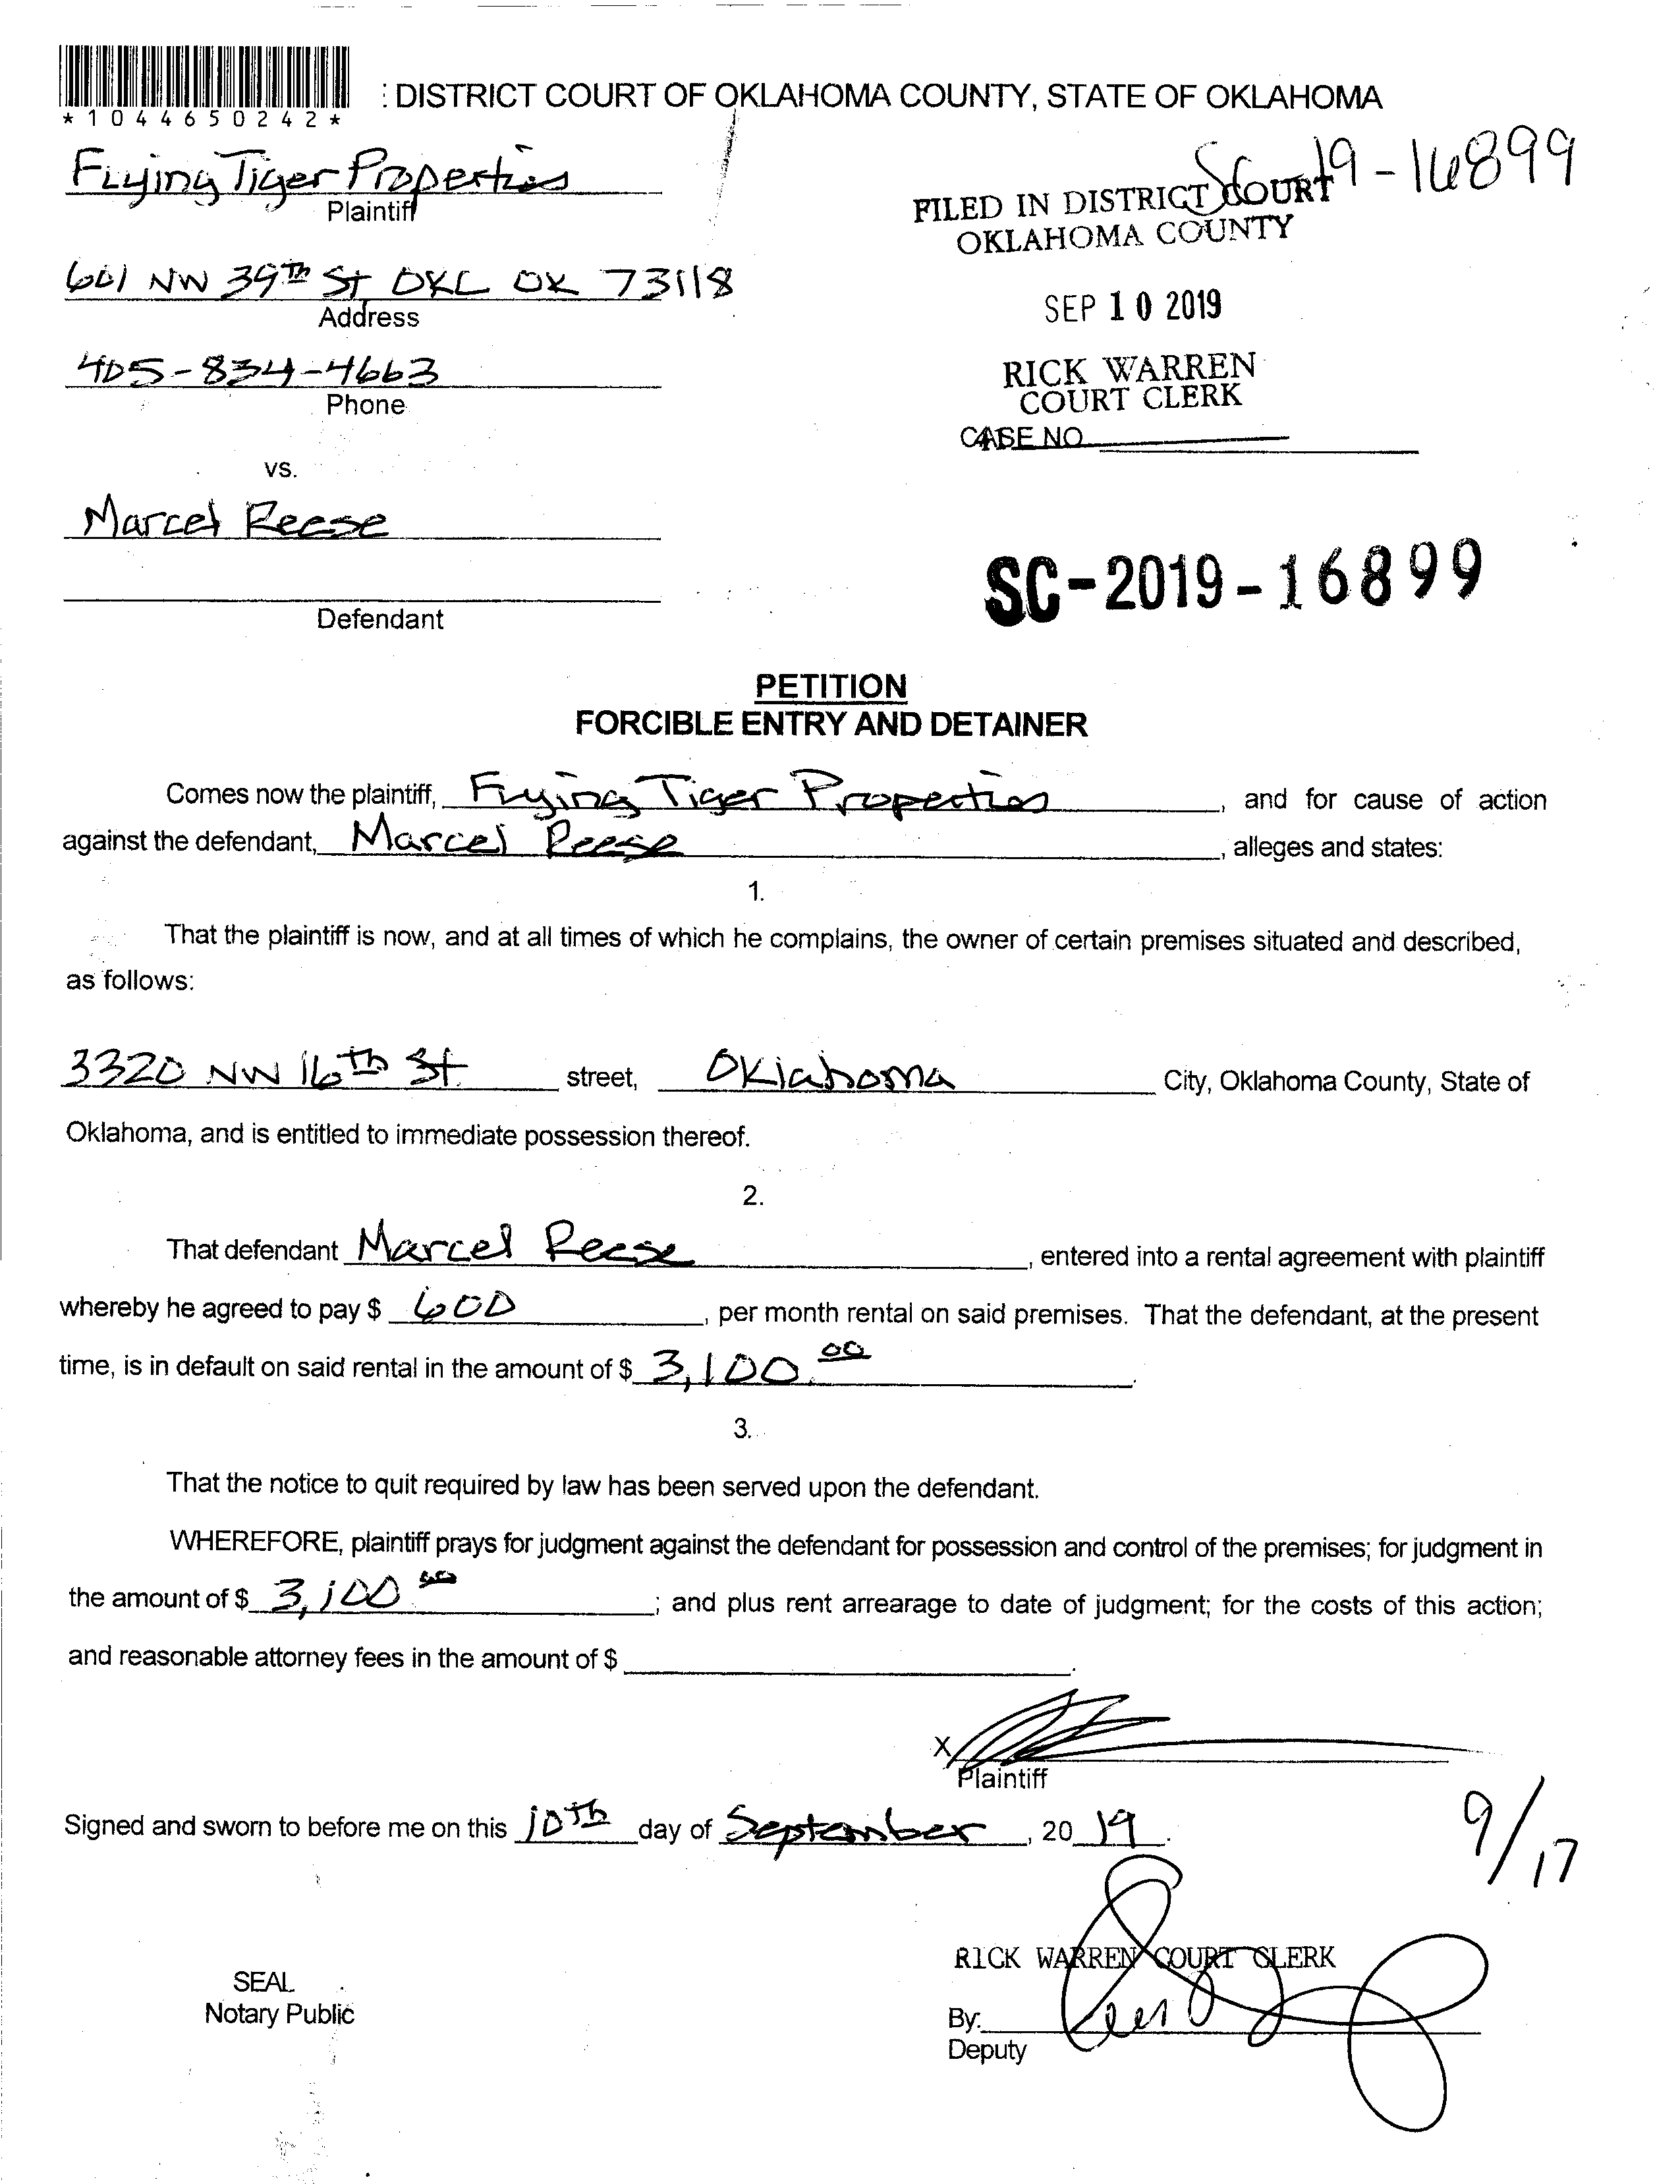 *1044650242*
: DISTRICT COURT OF OKLAHOMA COUNTY, STATE OF OKLAHOMA
Flying Tiger Properties
Plaintiff
SC-19-16899
FILED IN DISTRICT COURT
OKLAHOMA COUNTY
601 NW 39th St OKC OK 73118
Address
SEP 10 2019
405-834-4663
Phone
RICK WARREN
COURT CLERK
CASE NO.
vs.
Marcel Reese
Defendant
SC-2019-16899
PETITION
FORCIBLE ENTRY AND DETAINER
Comes now the plaintiff, Flying Tiger Properties, and for cause of action
against the defendant, Marcel Reese, alleges and states:
1.
That the plaintiff is now, and at all times of which he complains, the owner of certain premises situated and described,
as follows:
3320 NW 16th St. street, Oklahoma City, Oklahoma County, State of
Oklahoma, and is entitled to immediate possession thereof.
2.
That defendant Marcel Reese, entered into a rental agreement with plaintiff
whereby he agreed to pay $ 600, per month rental on said premises. That the defendant, at the present
time, is in default on said rental in the amount of $ 3,100.00.
3.
That the notice to quit required by law has been served upon the defendant.
WHEREFORE, plaintiff prays for judgment against the defendant for possession and control of the premises; for judgment in
the amount of $ 3,100.00; and plus rent arrearage to date of judgment; for the costs of this action;
and reasonable attorney fees in the amount of $ .
X
Plaintiff
Signed and sworn to before me on this 10th day of September, 2019.
9/17
RICK WARREN COURT CLERK
SEAL
Notary Public
By:
Deputy